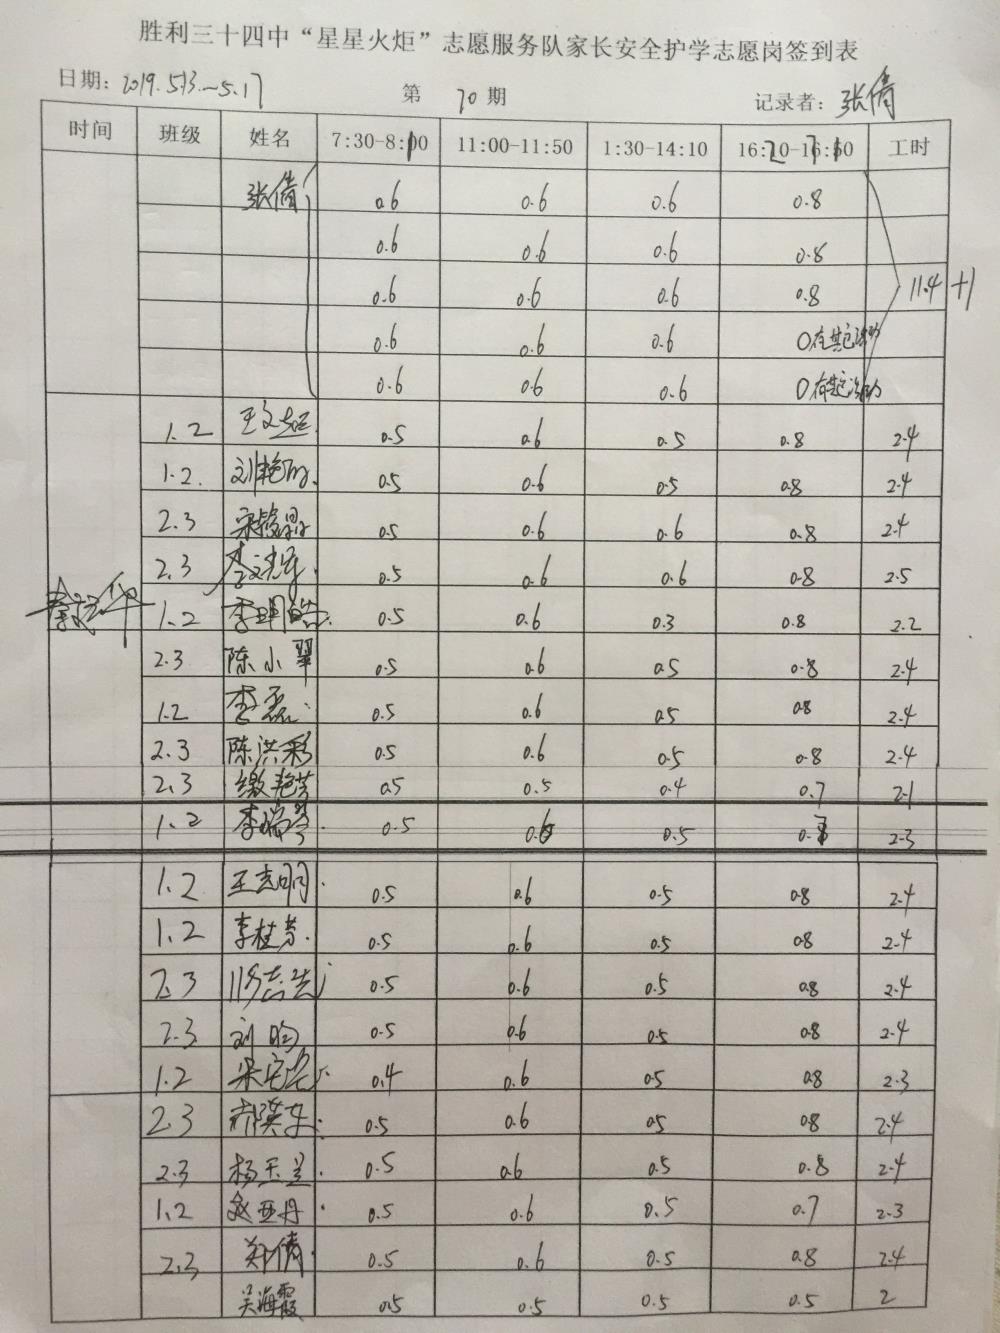 胜利三十四中“星星火炬”志愿服务队家长安全护学志愿岗签到表
日期: 2019.5.13.~5.17 第 70 期 记录者: 张倩
时间 班级 姓名 7:30-8:10 11:00-11:50 1:30-14:10 16:20-17:10 工时
张倩 0.6 0.6 0.6 0.8
0.6 0.6 0.6 0.8
0.6 0.6 0.6 0.8 11.4 +1
0.6 0.6 0.6 0有其它活动
0.6 0.6 0.6 0有其它活动
1.2 0.5 0.6 0.5 0.8 2.4
1.2. 0.5 0.6 0.5 0.8 2.4
2.3 0.5 0.6 0.6 0.8 2.4
2.3 0.5 0.6 0.6 0.8 2.5
1.2 0.5 0.6 0.3 0.8 2.2
2.3 陈小翠 0.5 0.6 0.5 0.8 2.4
1.2 李磊 0.5 0.6 0.5 0.8 2.4
2.3 陈洪彩 0.5 0.6 0.5 0.8 2.4
2.3 缴艳芳 0.5 0.5 0.4 0.7 2.1
1.2 李瑞琴 0.5 0.6 0.5 2.3
1.2 王志明 0.5 0.6 0.5 0.8 2.4
1.2 李桂芳 0.5 0.6 0.5 0.8 2.4
2.3 0.5 0.6 0.5 0.8 2.4
2.3 刘昀 0.5 0.6 0.5 0.8 2.4
1.2 0.4 0.6 0.5 0.8 2.3
2.3 0.5 0.6 0.5 0.8 2.4
2.3 杨玉兰 0.5 0.6 0.5 0.8 2.4
1.2 赵亚丹 0.5 0.6 0.5 0.7 2.3
2.3 郑倩 0.5 0.6 0.5 0.8 2.4
吴海霞 0.5 0.5 0.5 0.5 2